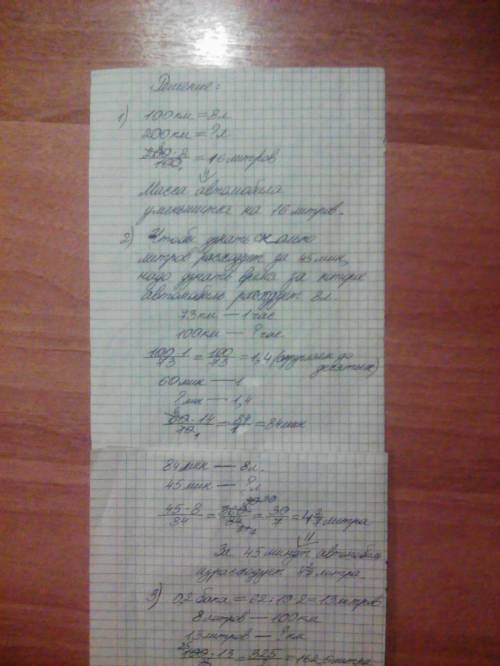 Решение:
1) 100 км = 8 л
200 км = ? л
200 · 8 / 100 = 16 литров
Масса автомобиля
уменьшится на 16 литров.
2) Чтобы узнать сколько
литров расходует за 45 мин,
надо узнать за
автомобиль расходует 8 л.
73 км — 1 час
100 км — ? час
100 · 1 / 73 = 100 / 73 = 1,4 (округляем до десятых)
60 мин — 1
? мин — 1,4
60 · 14 / 10 = 84 / 1 = 84 мин
84 мин — 8 л.
45 мин — ? л
45 · 8 / 84 = 360 / 84 = 30 / 7 = 4 2/7 литра
За 45 минут автомобиль
израсходует 4 2/7 литра.
3) 0,2 бака =
8 литров — 100 км
13 литров — ? км
100 · 13 = 325